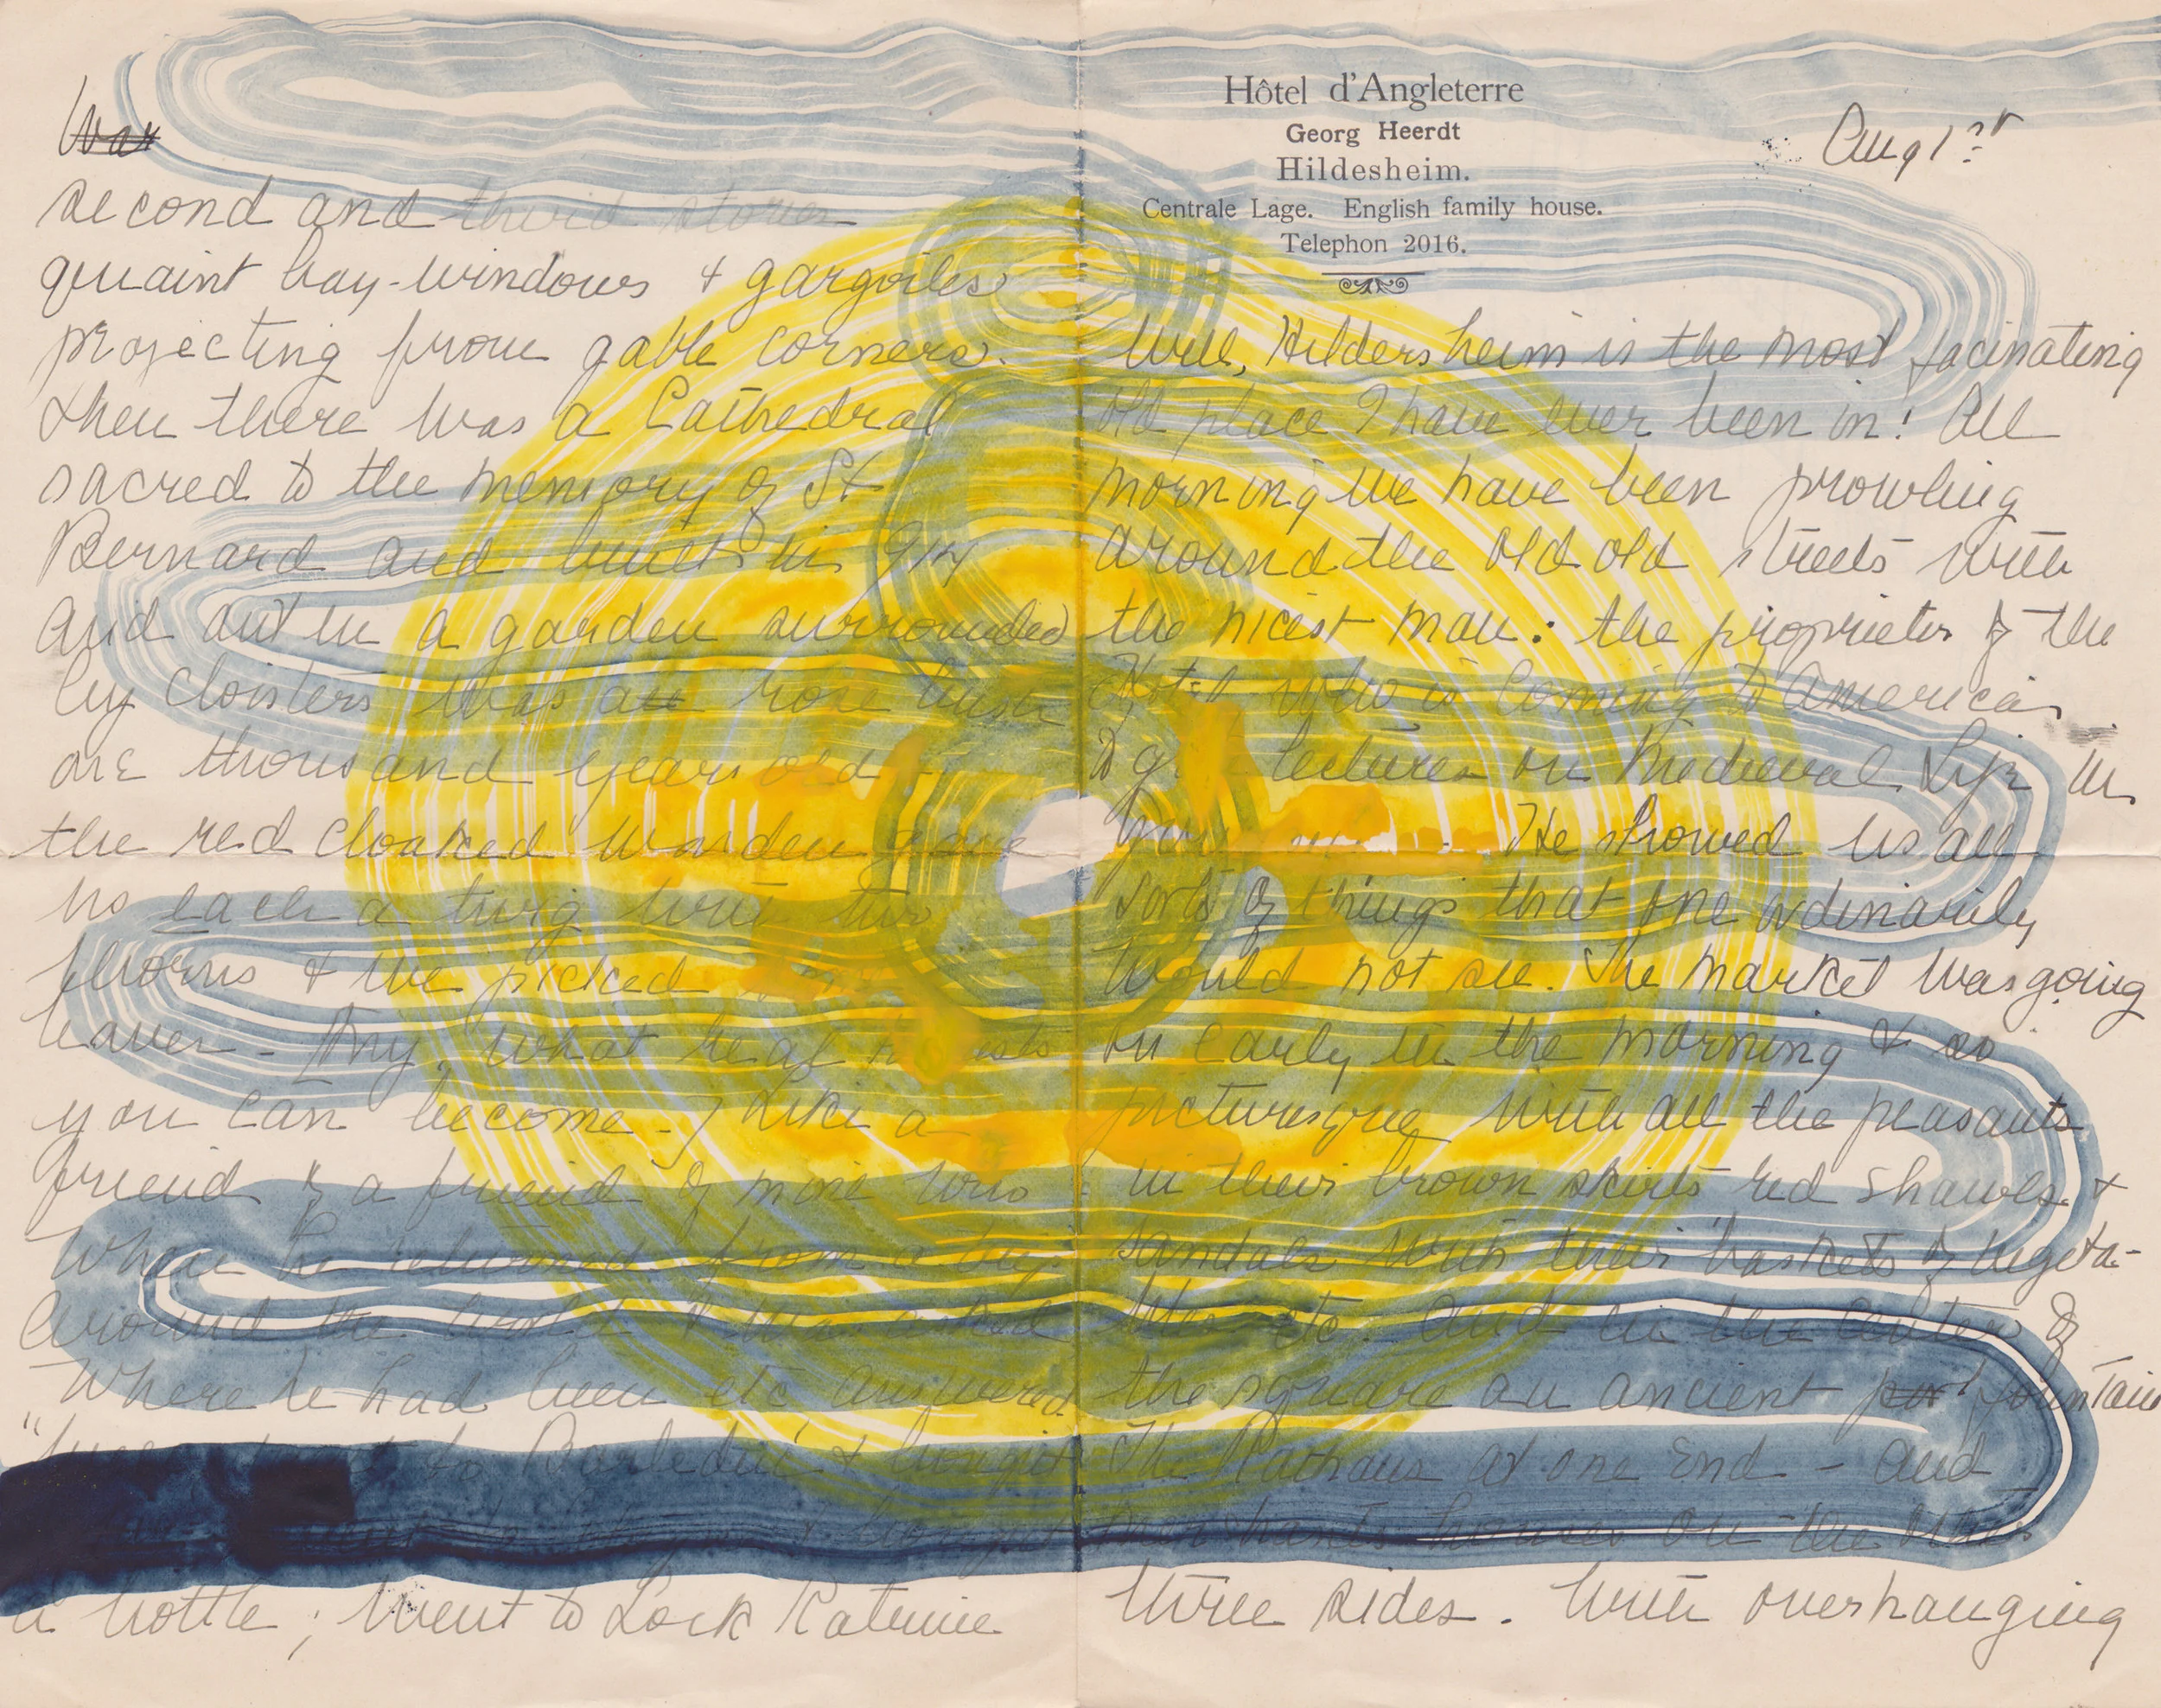 Hôtel d'Angleterre
Georg Heerdt
Hildesheim.
Centrale Lage. English family house.
Telephon 2016.
Aug 1st
Well, Hildersheim is the most facinating
old place I have ever been in! All
morning we have been prowling
around the old old streets with
the nicest man: the proprietor of the
Hotel, who is coming to America
to give lectures on Medieval Life in
He showed us all
sorts of things that one ordinarily
would not see. The market was going
on early in the morning & so
picturesque with all the peasants
in their brown skirts red shawls &
sandals with their baskets of vegeta-
bles etc. And in the center of
the square an ancient fountain
The Rathaus at one end - and
houses on the other
three sides. With overhanging
Wax
second and third stories
quaint bay-windows & gargoiles
projecting from gable corners.
then there was a Cathedral
sacred to the memory of St
Bernard and built in 914
and out in a garden surrounded
by cloisters was a rose bush
one thousand years old
the red cloaked warden gave
us each a twig with two
thorns & we picked some
leaves - My, what real tourists
you can become - Like a
friend of a friend of mine who
when he returned from a trip
around the world & was asked
where he had been etc answered
to Barleduc & bought
a bottle; went to Lock Katrine